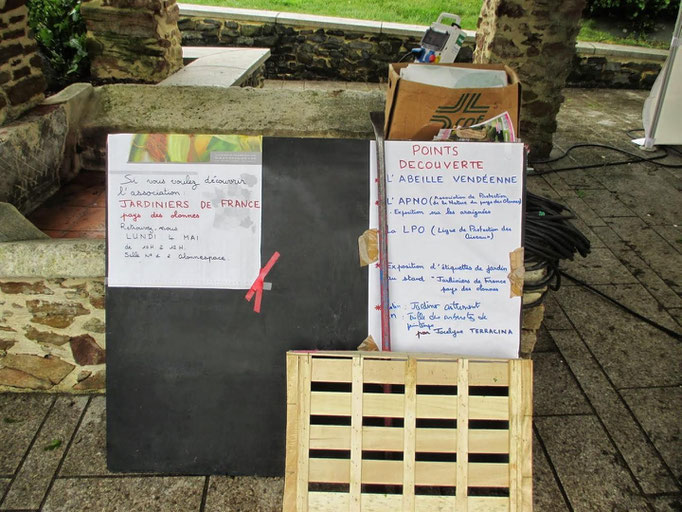 Si vous voulez découvrir
l'association
JARDINIERS DE FRANCE
pays des olonnes
Retrouvez-nous
LUNDI 4 MAI
de 10H à 12H.
Salle N° à Olonnespace
POINTS
DECOUVERTE
L'ABEILLE VENDÉENNE
L'APNO (Association de Protection
de la Nature du pays des Olonnes)
- Exposition sur les araignées
La LPO (Ligue de Protection des
Oiseaux)
Exposition d'étiquettes de jardin
au stand "Jardiniers de France
pays des olonnes
Jardiner autrement
Taille des arbustes de
printemps
par Jocelyne TERRACINA